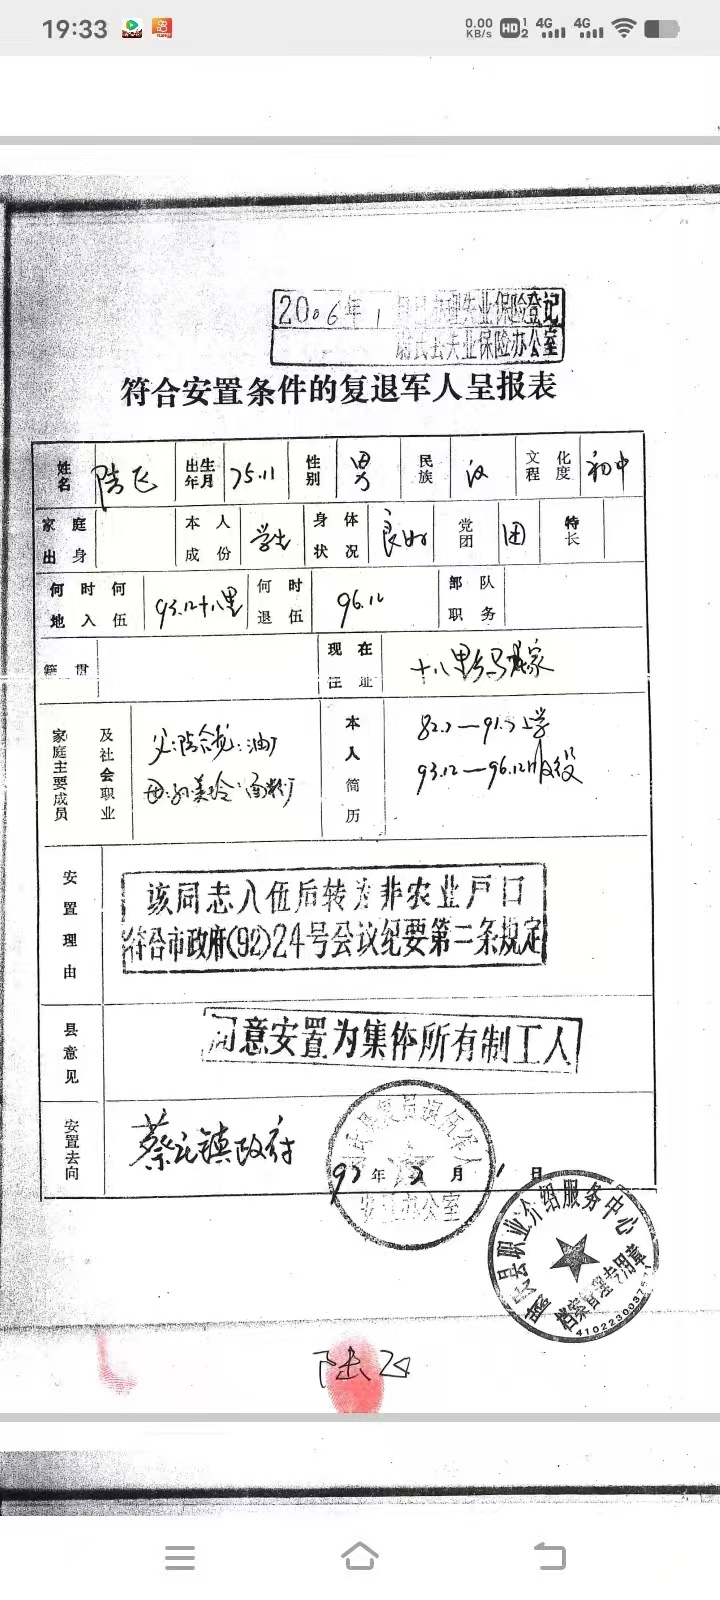 19:33
0.00 KB/s HD 1 2 4G 4G
2006年1 办理失业保险登记
尉氏县失业保险办公室
符合安置条件的复退军人呈报表
姓名 陆飞 出生年月 75.11 性别 男 民族 汉 文化程度 初中
家庭出身 本人成份 学生 身体状况 良好 党团 团 特长
何时何地入伍 93.12十八里 何时退伍 96.12 部队职务
籍贯 现在住址 十八里
家庭主要成员及社会职业 父:陆 :油厂 本人简历 82.7—91.7上学
母: 美玲:面粉厂 93.12—96.12服役
安置理由 该同志入伍后转为非农业户口
符合市政府(92)24号会议纪要第二条规定
县意见 同意安置为集体所有制工人
安置去向 蔡庄镇政府
尉氏县复员退伍军人
安置办公室
97年2月1日
尉氏县职业介绍服务中心
档案管理专用章
陆飞